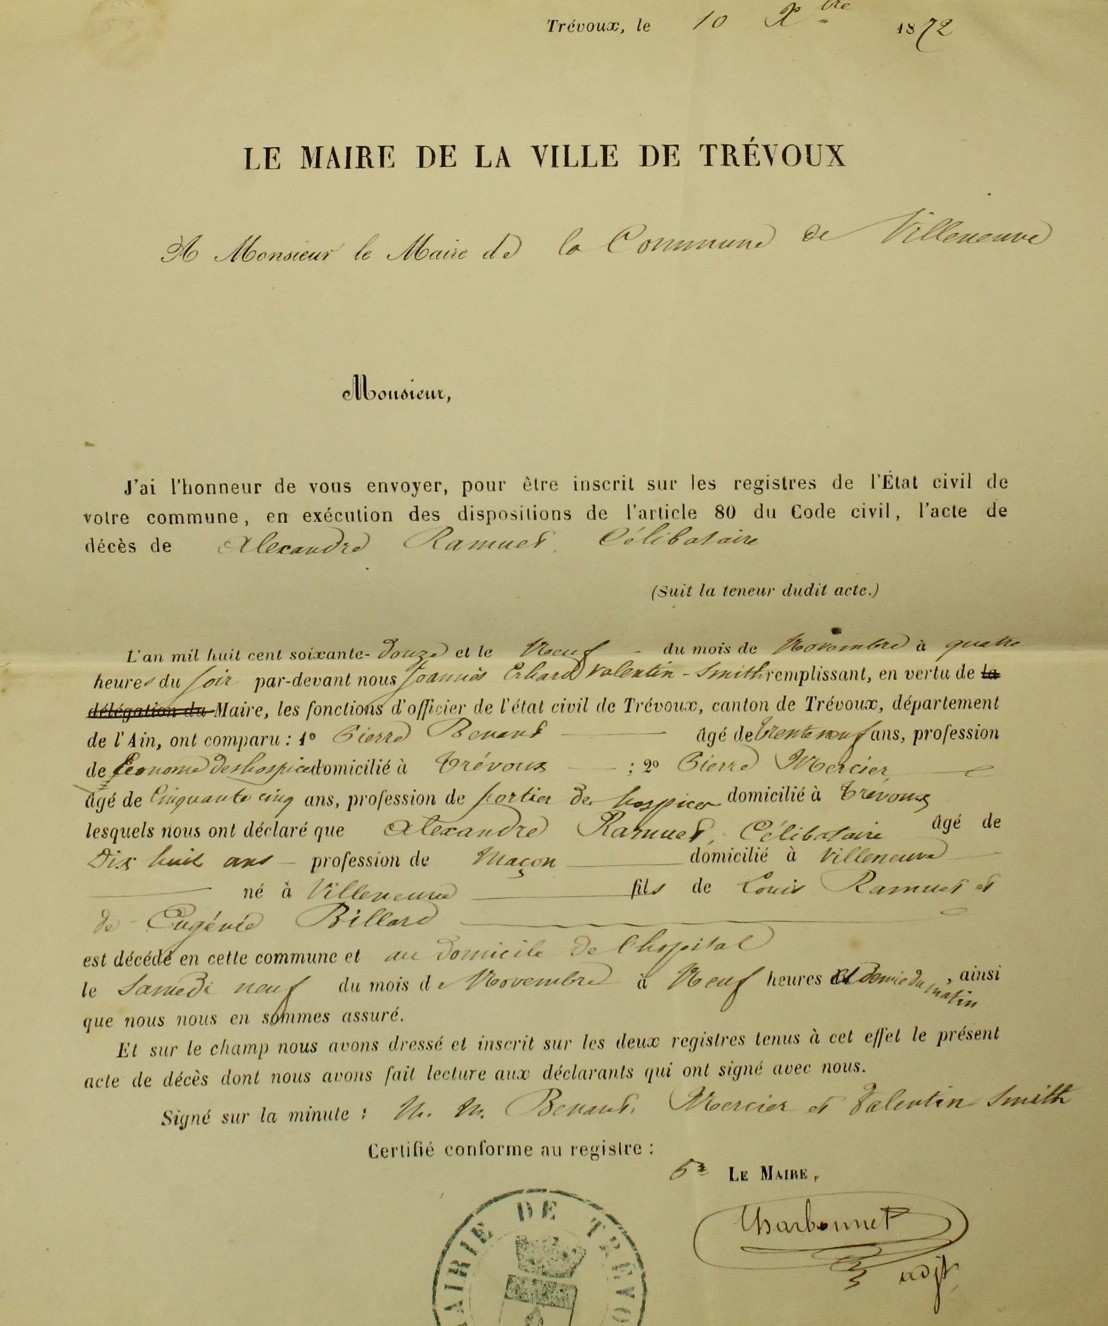 Trévoux, le 10 Xbre 1872
LE MAIRE DE LA VILLE DE TRÉVOUX
A Monsieur le Maire de la Commune de Villeneuve
Monsieur,
J'ai l'honneur de vous envoyer, pour être inscrit sur les registres de l'État civil de
votre commune, en exécution des dispositions de l'article 80 du Code civil, l'acte de
décès de Alexandre Ramuet, Célibataire
(Suit la teneur dudit acte.)
L'an mil huit cent soixante-douze et le Neuf du mois de Novembre à quatre
heures du soir par-devant nous Joannès Erhard Valentin-Smith remplissant, en vertu de la
délégation du Maire, les fonctions d'officier de l'état civil de Trévoux, canton de Trévoux, département
de l'Ain, ont comparu : 1º Pierre Benant âgé de trente neuf ans, profession
de Econome des hospices domicilié à Trévoux ; 2º Pierre Mercier,
âgé de Cinquante cinq ans, profession de portier des hospices domicilié à Trévoux
lesquels nous ont déclaré que Alexandre Ramuet, Célibataire âgé de
Dix huit ans profession de Maçon domicilié à Villeneuve
né à Villeneuve fils de Louis Ramuet et
de Eugénie Billard
est décédé en cette commune et au domicile de l'hopital
le Samedi neuf du mois de Novembre à Neuf heures et demie du matin, ainsi
que nous nous en sommes assuré.
Et sur le champ nous avons dressé et inscrit sur les deux registres tenus à cet effet le présent
acte de décès dont nous avons fait lecture aux déclarants qui ont signé avec nous.
Signé sur la minute : M. M. Benant, Mercier et Valentin Smith
Certifié conforme au registre :
Pr LE MAIRE,
Charbonnet
adjt
MAIRIE DE TRÉVO